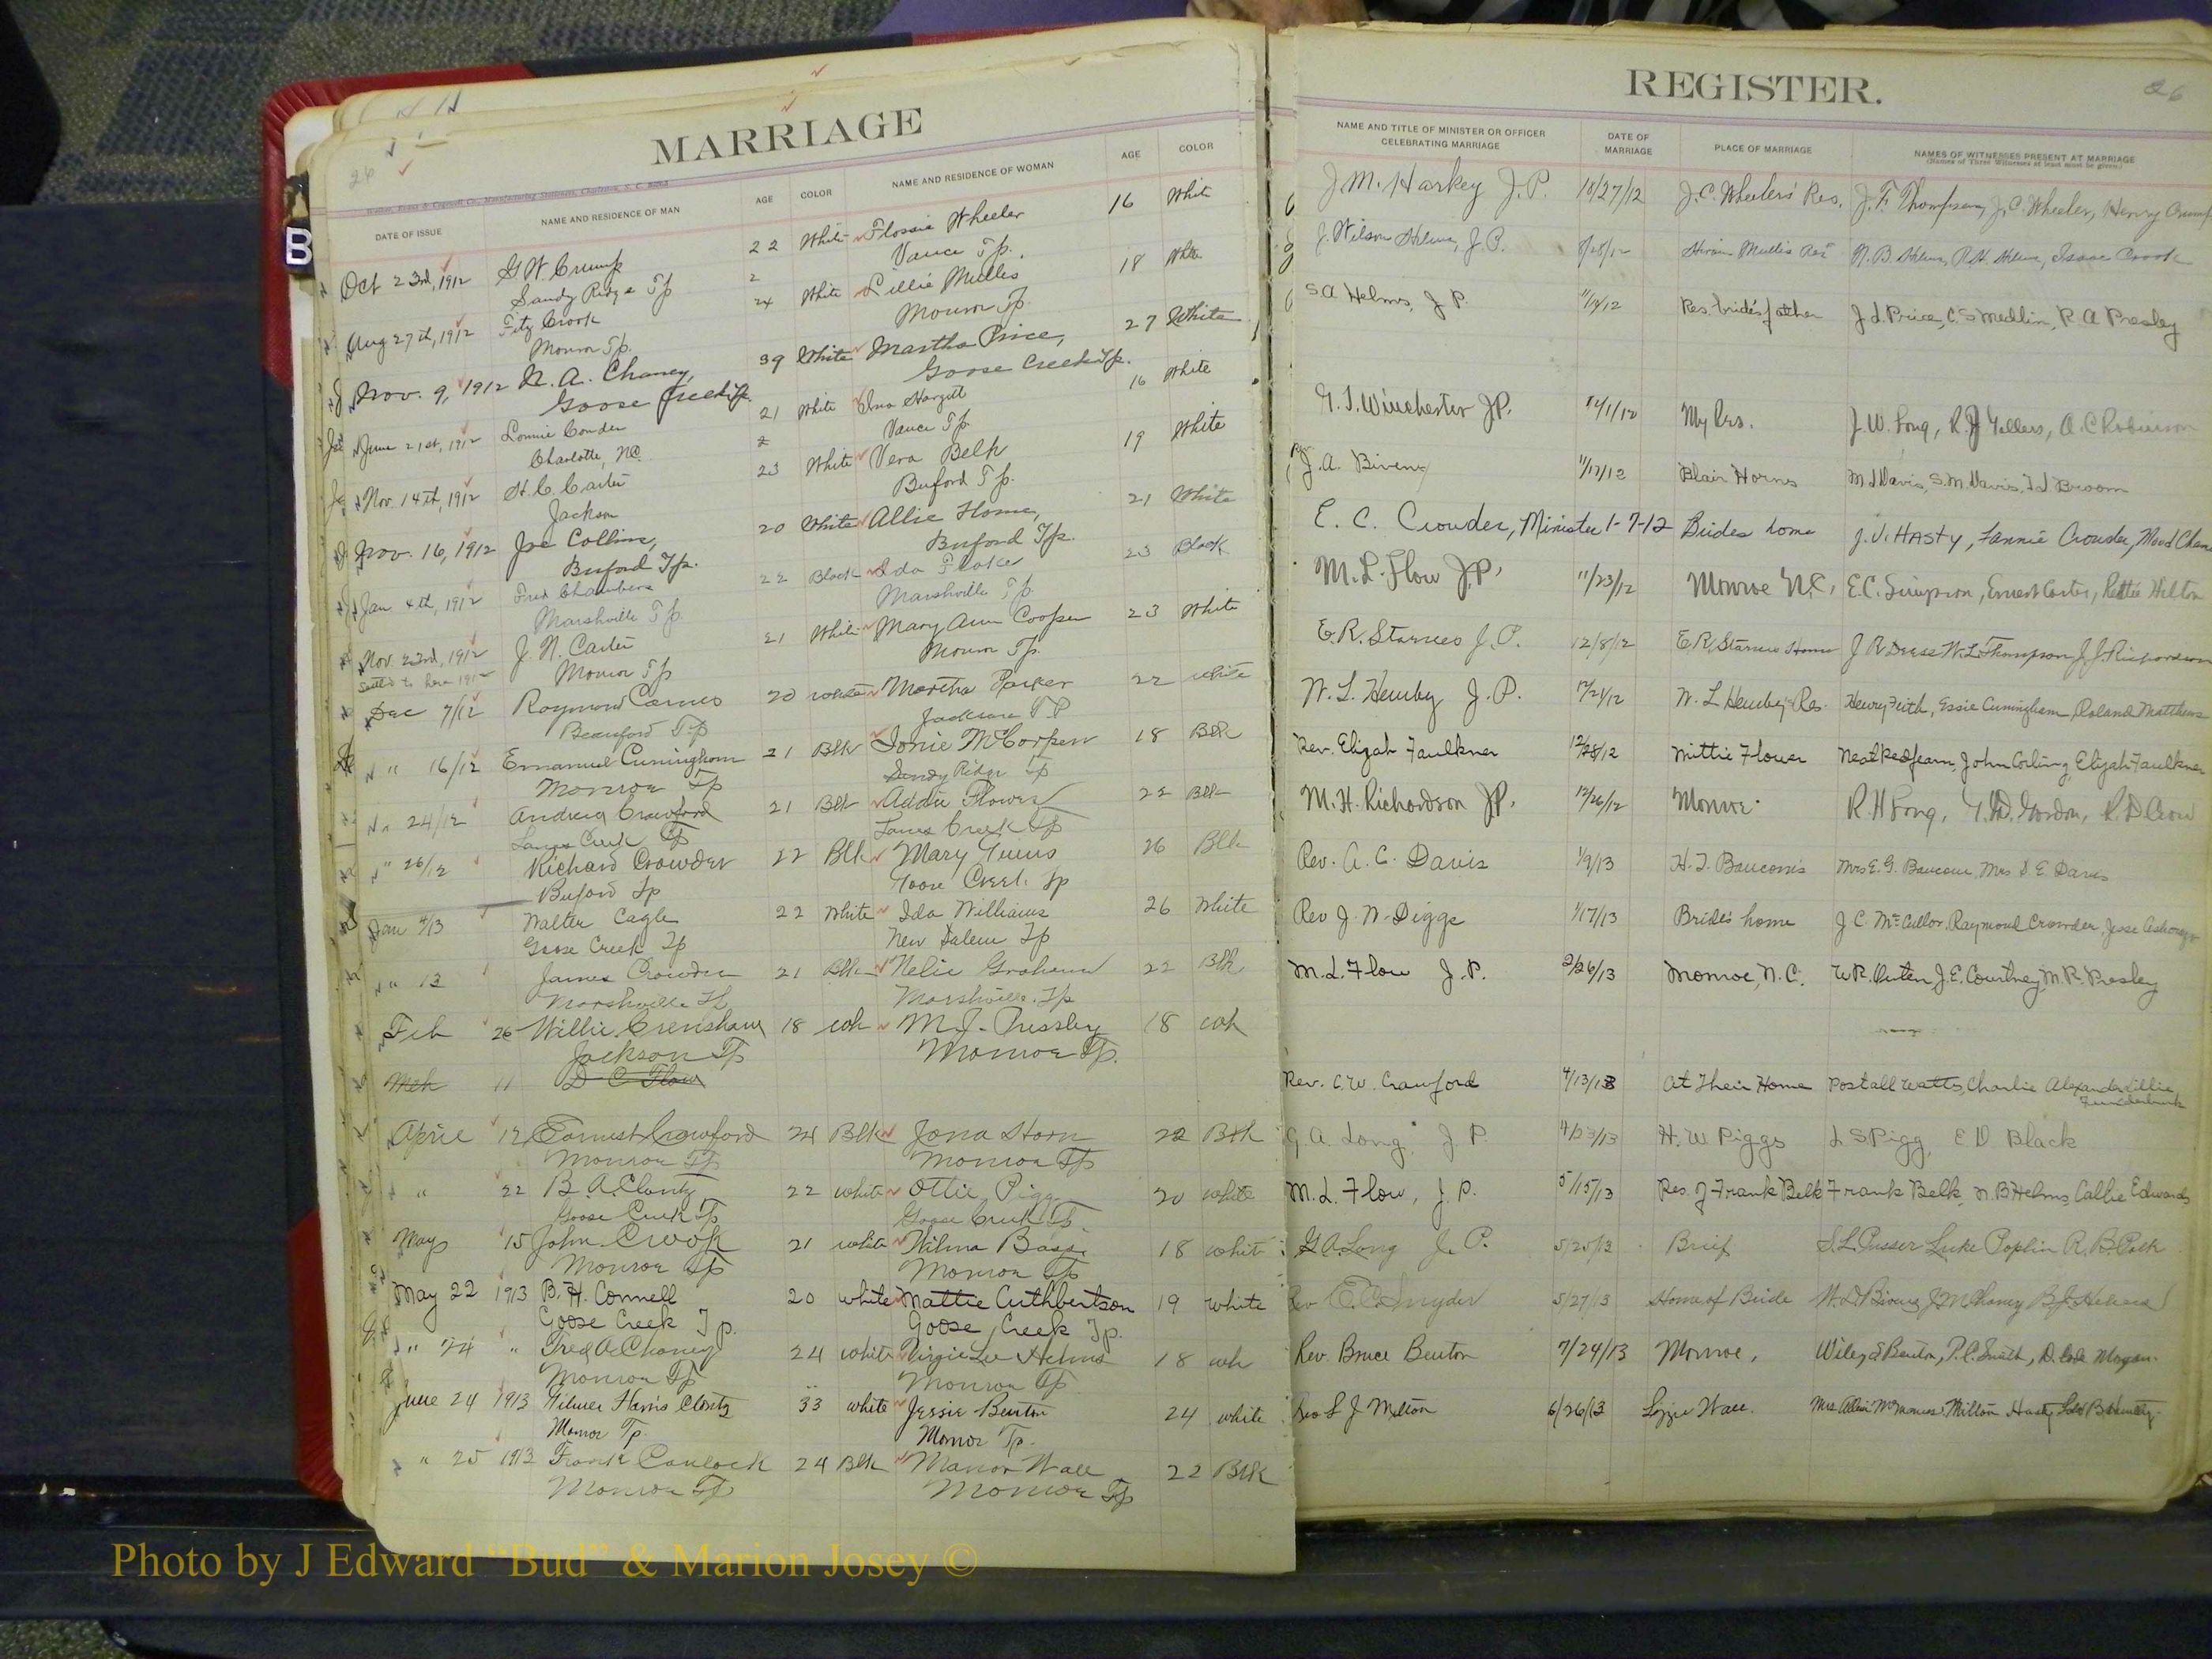 MARRIAGE
26
DATE OF ISSUE NAME AND RESIDENCE OF MAN AGE COLOR NAME AND RESIDENCE OF WOMAN AGE COLOR
Oct 23rd, 1912 G W Crump 22 White Flossie Wheeler 16 White
Sandy Ridge Tp Vance Tp.
Aug 27th, 1912 Fitz Crook 24 White Lillie Mullis 18 White
Monroe Tp. Monroe Tp.
Nov. 9, 1912 N. A. Chaney, 39 White Martha Price, 27 White
Goose Creek Tp. Goose Creek Tp.
June 21st, 1912 Lonnie Conder 21 White Ina Hargett 16 White
Charlotte, NC. Vance Tp.
Nov. 14th, 1912 H. C. Carter 23 White Vera Belk 19 White
Jackson Buford Tp.
Nov. 16, 1912 Joe Collins, 20 White Allie Horne, 21 White
Buford Tp. Buford Tp.
Jan 4th, 1912 Fred Chambers 22 Black Ida 23 Black
Marshville Tp. Marshville Tp
Nov. 23rd, 1912 J. N. Carter 21 White Mary Ann Cooper 23 White
Monroe Tp Monroe Tp.
Dec 7/12 Raymond Carnes 20 white Martha Parker 22 white
Beauford Tp Jackson T.P
" 16/12 Emanuel Cuningham 21 Blk Ionie McCorpen 18 Blk
Monroe Tp Sandy Ridge Tp
" 24/12 Andrew Crawford 21 Blk Addie Flower 22 Blk
Lanes Creek Tp Lanes Creek Tp
" 26/12 Richard Crowder 22 Blk Mary 26 Blk
Buford Tp Goose Creek Tp
Jan 4/13 Walter Cagle 22 White Ida Williams 26 White
Goose Creek Tp New Salem Tp
" 13 James Crowder 21 Blk Nelie Graham 22 Blk
Marshville Marshville Tp
Feb 26 Willie Crenshaw 18 wh M. J. Pressley 18 wh
Jackson Tp Monroe Tp.
Mch 11 D C Flow
Aprile 12 Earnest Crawford 24 Blk Jona Horn 22 Blk
Monroe Tp Monroe Tp
" 22 B. A. Clontz 22 white Ottie Pigg 20 white
Goose Creek Tp Goose Creek Tp.
May 15 John Crook 21 white Wilma Bass 18 whit
Monroe Tp Monroe Tp
May 22 1913 B. H. Connell 20 white Mattie Cuthbertson 19 white
Goose Creek Tp. Goose Creek Tp.
" 24 " Fred A Chaney 24 white Virgie Lee Helms 18 wh
Monroe Tp Monroe Tp
June 24 1913 Wilmer Harris Clontz 33 white Jessie Benton 24 white
Monroe Tp. Monroe Tp.
" 25 1913 Frank Caulock 24 Blk Marion Wall 22 Blk
Monroe Tp Monroe Tp
REGISTER.
26
NAME AND TITLE OF MINISTER OR OFFICER CELEBRATING MARRIAGE DATE OF MARRIAGE PLACE OF MARRIAGE NAMES OF WITNESSES PRESENT AT MARRIAGE
(Names of Three Witnesses at least must be given.)
J. M. Harkey J. P. 10/27/12 J. C. Wheeler's Res. J. F. Thompson, J. C. Wheeler, Henry Crump
J. Wilson Helms, J. P. 8/28/12 Hiram Mullis Res N. B. Helms, R. H. Helms, Isaac Crook
S A Helms, J P. 11/14/12 Res. bride's father J. L. Price, C. S Medlin, R. A Presley
G. T. Winchester JP. My Res. J. W. Long, R. J Yellers, A. C Robinson
J. A. Bivens 11/17/12 Blair Hornes M J Davis, S. M. Davis, T J Broom
E. C. Crowder, Minister 1-7-12 Brides home J. V. Hasty, Fannie Crowder, Maud
M. L. Flow J.P. 11/23/12 Monroe N.C, E. C. Simpson, Ernest Carter, Rettie Hilton
E. R. Starnes J. P. 12/8/12 E R. Starnes Home J R Deese W. L. Thompson J. J. Richardson
W. L. Hemby J. P. 12/21/12 W. L Hemby Res. Henry Feith, Essie Cuningham, Roland Matthews
Rev. Elijah Faulkner 12/28/12 Mittie Flower Neal Redfearn, John Corling, Elijah Faulkner
M. H. Richardson JP. 12/26/12 Monroe R. H Long, Gordon, R. D Crow
Rev. A. C. Davis 1/9/13 H. T. Baucom's Mrs E. G. Baucom, Mrs D E Davis
Rev J. W. Diggs 1/17/13 Bride's home J C. McCullor, Raymond Crowder, Jesse
M. L. Flow J. P. 2/26/13 Monroe, N. C. W R. Outen, J. E. Courtney, M. R. Presley
Rev. C. W. Crawford 4/13/13 at Their Home Postall Watts, Charlie Alexander, Lillie
Funderburk
G. A. Long J P. 4/23/13 H. W Piggs L S Pigg, E D Black
M. L. Flow, J. P. 5/15/13 Res. of Frank Belk Frank Belk, N. B Helms, Callie Edwards
G. A Long J. P. 5/25/13 Brief S. L. Pusser Luke Poplin R. B. Polk
Rev E. C. Snyder 5/27/13 Home of Bride W. D. Bivens J M Chaney B. J. Helms
Rev. Bruce Benton 7/24/13 Monroe, Wiley S Benton, P. C. Smith, D. Morgan.
Rev L J Melton 6/26/13 Lizzie Wall. Mrs Allen McManus Milton Hasty
Photo by J Edward “Bud” & Marion Josey ©